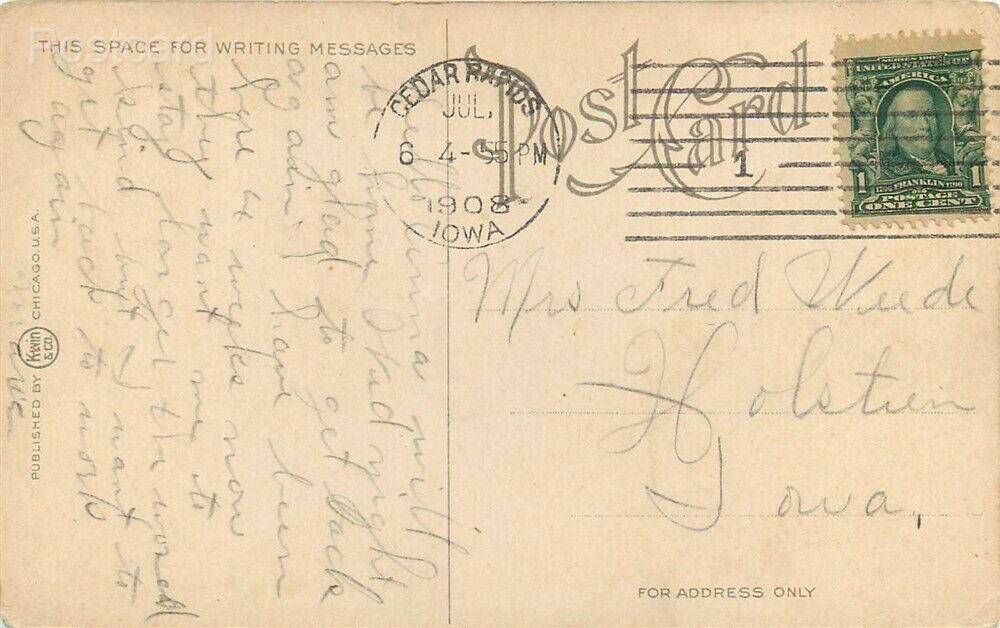 Postcard
THIS SPACE FOR WRITING MESSAGES
Post Card
CEDAR RAPIDS
JUL,
6 4-55 PM
1908
IOWA
1
SERIES 1902
UNITED STATES OF
AMERICA
1 1
FRANKLIN
POSTAGE
ONE CENT
Mrs Fred Weede
Holstien
Iowa,
FOR ADDRESS ONLY
PUBLISHED BY Kwin & CO. CHICAGO. U.S.A.
Hello Emma will
be home Wed night
am glad to get back
again have been
here 2 weeks now
they want me to
stay longer the worst
kind but I want to
get back to work
again